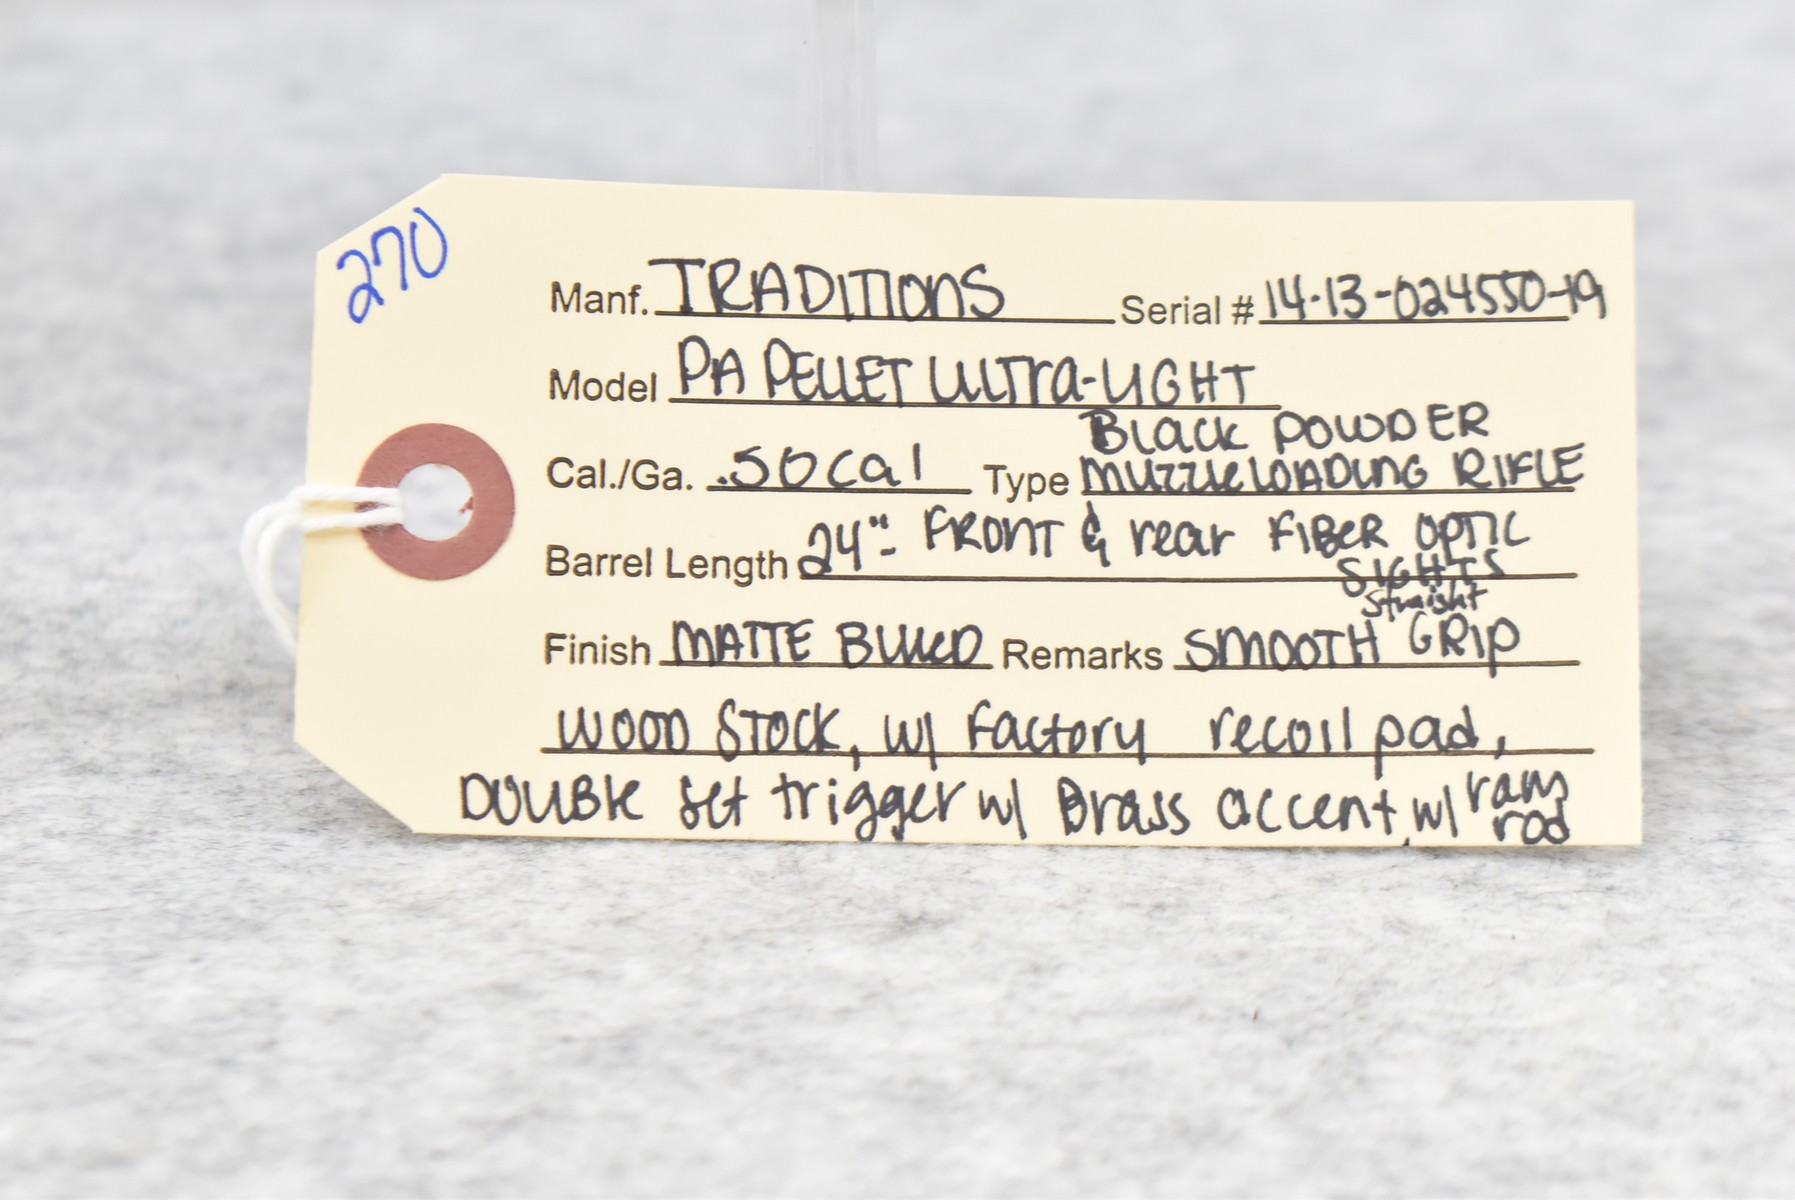 270
Manf. TRADITIONS Serial # 14-13-024550-19
Model PA PELLET ULTra-LIGHT
Cal./Ga. .50 cal Type BLack POWDER MUZZLELOADING RIFLE
Barrel Length 24" - FRONT & rear FIBER OPTIC SIGHTS
Finish MATTE BLUED Remarks SMOOTH straight GRIP
WOOD STOCK, w/ Factory recoil pad,
DOUBLE set trigger w/ Brass accent, w/ ram rod